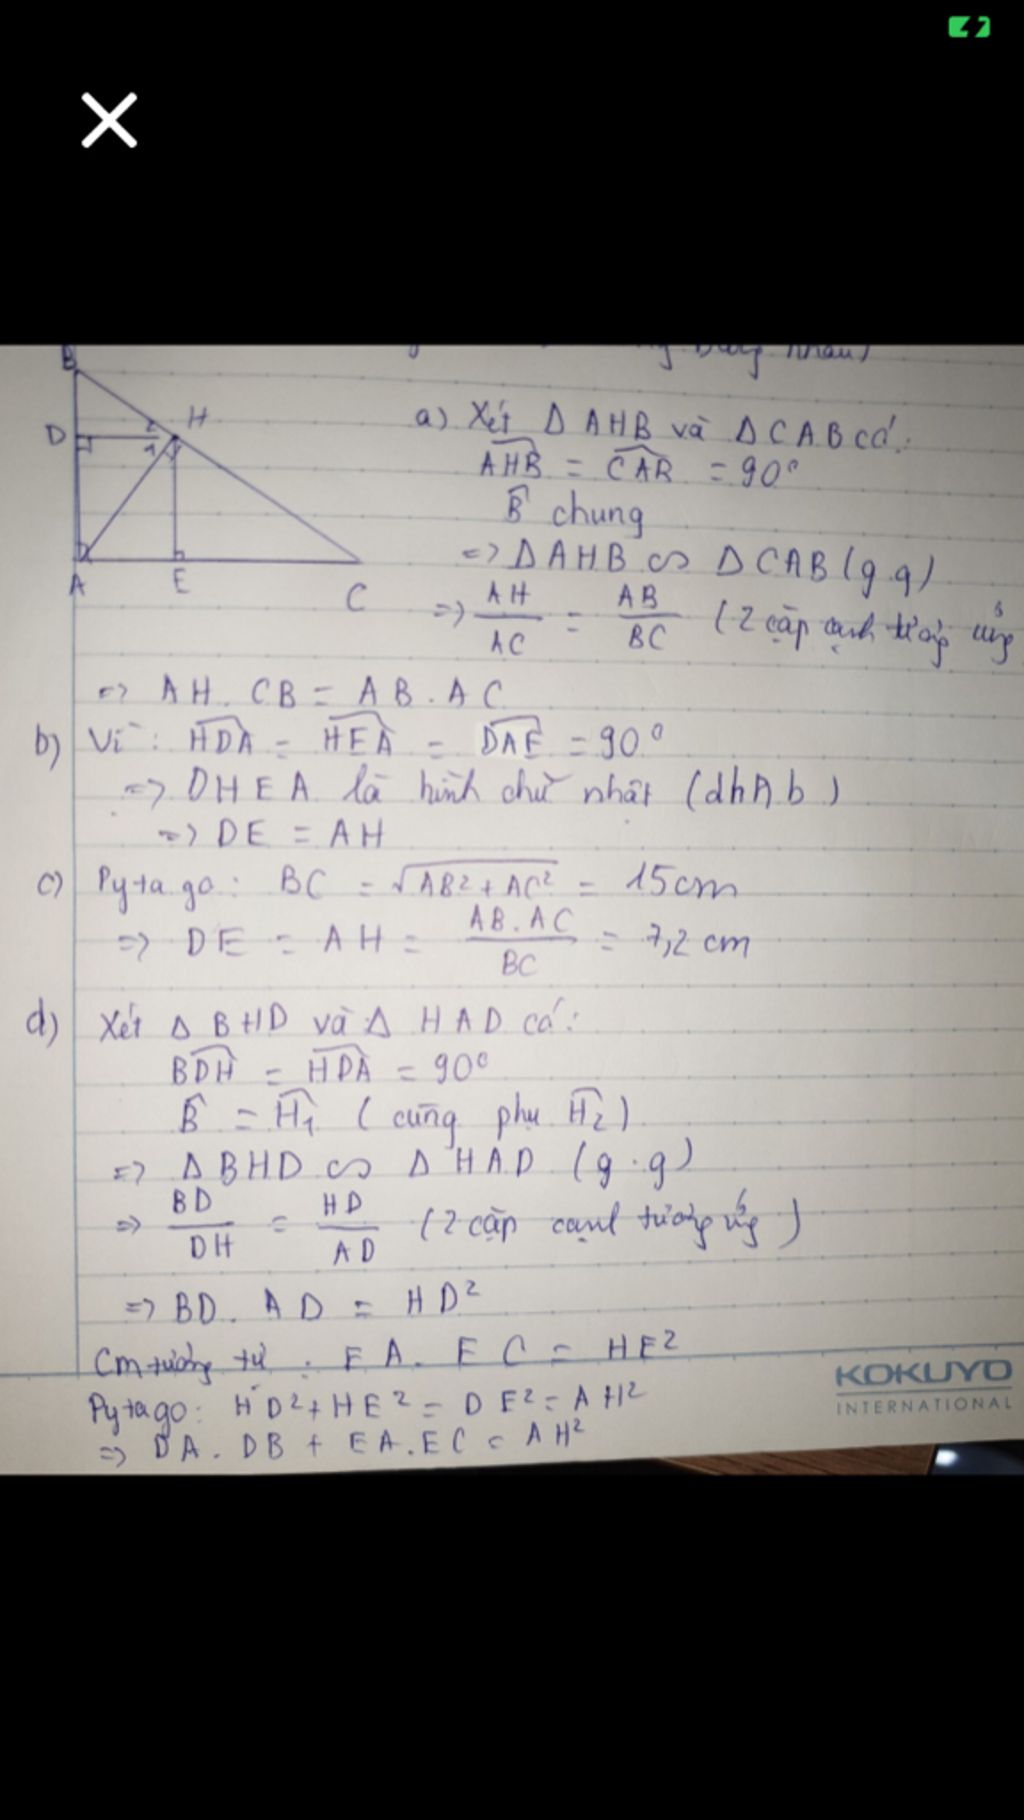 nhau)
B
D
H
2
1
A
E
C
a) Xét Δ AHB và Δ CAB có:
AHB = CAB = 90°
B chung
=> Δ AHB ∽ Δ CAB (g.g)
=> AH/AC = AB/BC (2 cặp cạnh tương ứng
=> AH . CB = AB . AC
b) Vì : HDA = HEA = DAE = 90°
=> DHEA là hình chữ nhật (dhnb)
=> DE = AH
c) Pytago: BC = √AB² + AC² = 15cm
=> DE = AH = AB.AC/BC = 7,2 cm
d) Xét Δ BHD và Δ HAD có:
BDH = HDA = 90°
B = H1 ( cùng phụ H2)
=> Δ BHD ∽ Δ HAD (g.g)
=> BD/DH = HD/AD (2 cặp cạnh tương ứng)
=> BD . AD = HD²
Cm tương tự : EA . EC = HE²
Pytago: HD² + HE² = DE² = AH²
=> DA . DB + EA . EC = AH²
KOKUYO
INTERNATIONAL